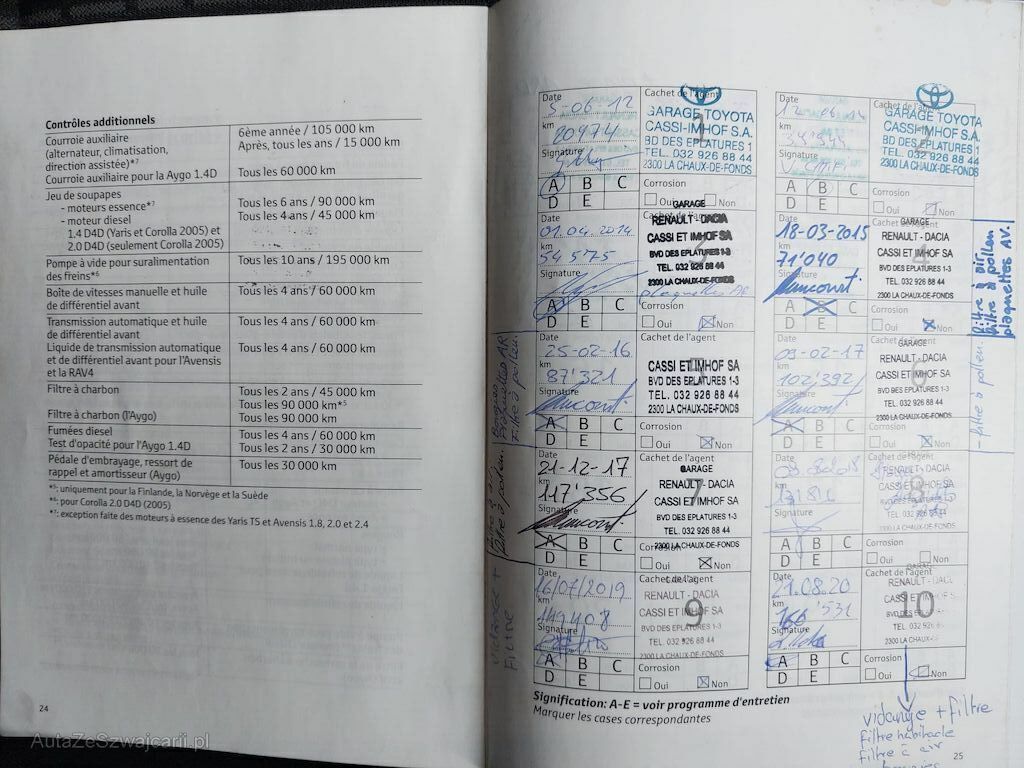 Contrôles additionnels
Courroie auxiliaire
(alternateur, climatisation,
direction assistée)*⁷
6ème année / 105 000 km
Après, tous les ans / 15 000 km
Courroie auxiliaire pour la Aygo 1.4D
Tous les 60 000 km
Jeu de soupapes
- moteurs essence*⁷
Tous les 6 ans / 90 000 km
- moteur diesel
Tous les 4 ans / 45 000 km
1.4 D4D (Yaris et Corolla 2005) et
2.0 D4D (seulement Corolla 2005)
Pompe à vide pour suralimentation
des freins*⁶
Tous les 10 ans / 195 000 km
Boîte de vitesses manuelle et huile
de différentiel avant
Tous les 4 ans / 60 000 km
Transmission automatique et huile
de différentiel avant
Tous les 4 ans / 60 000 km
Liquide de transmission automatique
et de différentiel avant pour l'Avensis
et la RAV4
Tous les 4 ans / 60 000 km
Filtre à charbon
Tous les 2 ans / 45 000 km
Tous les 90 000 km*⁵
Filtre à charbon (l'Aygo)
Tous les 90 000 km
Fumées diesel
Tous les 4 ans / 60 000 km
Test d'opacité pour l'Aygo 1.4D
Tous les 2 ans / 30 000 km
Pédale d'embrayage, ressort de
rappel et amortisseur (Aygo)
Tous les 30 000 km
*⁵: uniquement pour la Finlande, la Norvège et la Suède
*⁶: pour Corolla 2.0 D4D (2005)
*⁷: exception faite des moteurs à essence des Yaris TS et Avensis 1.8, 2.0 et 2.4
24
AutaZeSzwajcarii.pl
Date
5-06-12
km
20974
Signature
Cachet de l'agent
GARAGE TOYOTA
CASSI-IMHOF S.A.
BD DES EPLATURES 1
TEL. 032 926 88 44
2300 LA CHAUX-DE-FONDS
1
A B C
D E
Corrosion
Oui Non
Date
km
Signature
Cachet de l'agent
GARAGE TOYOTA
CASSI-IMHOF S.A.
BD DES EPLATURES 1
TEL. 032 926 88 44
2300 LA CHAUX-DE-FONDS
A B C
D E
Corrosion
Oui Non
Date
01.04.2014
km
54575
Signature
Cachet de l'agent
GARAGE
RENAULT - DACIA
CASSI ET IMHOF SA
BVD DES EPLATURES 1-3
TEL. 032 926 88 44
2300 LA CHAUX-DE-FONDS
plaquettes AR
A B C
D E
Corrosion
Oui Non
Date
18-03-2015
km
71'040
Signature
Cachet de l'agent
GARAGE
RENAULT - DACIA
CASSI ET IMHOF SA
BVD DES EPLATURES 1-3
TEL. 032 926 88 44
2300 LA CHAUX-DE-FONDS
A B C
D E
Corrosion
Oui Non
filtre à air
filtre à pollen
plaquettes AV.
Date
25-02-16
km
87'321
Signature
Cachet de l'agent
CASSI ET IMHOF SA
BVD DES EPLATURES 1-3
TEL. 032 926 88 44
2300 LA CHAUX-DE-FONDS
A B C
D E
Corrosion
Oui Non
Plaquettes AR
Filtre à pollen.
Date
09-02-17
km
102'392
Signature
GARAGE
RENAULT - DACIA
CASSI ET IMHOF SA
BVD DES EPLATURES 1-3
TEL. 032 926 88 44
2300 LA CHAUX-DE-FONDS
A B C
D E
Corrosion
Oui Non
filtre à pollen.
Date
21-12-17
km
117'356
Signature
Cachet de l'agent
GARAGE
RENAULT - DACIA
CASSI ET IMHOF SA
BVD DES EPLATURES 1-3
TEL. 032 926 88 44
2300 LA CHAUX-DE-FONDS
7
A B C
D E
Corrosion
Oui Non
filtre à pollen.
Date
km
Signature
Cachet de l'agent
A B C
D E
Corrosion
Oui Non
Date
16/07/2019
km
149408
Signature
Cachet de l'agent
RENAULT - DACIA
CASSI ET IMHOF SA
BVD DES EPLATURES 1-3
TEL. 032 926 88 44
2300 LA CHAUX-DE-FONDS
9
A B C
D E
Corrosion
Oui Non
vidange +
Filtre
Date
21.08.20
km
166'531
Signature
Cachet de l'agent
RENAULT -
CASSI
BVD DES
TEL. 032 926
2300 LA CHAUX-
10
A B C
D E
Corrosion
Oui Non
Signification: A-E = voir programme d'entretien
Marquer les cases correspondantes
vidange + filtre
filtre habitacle
filtre à air
25